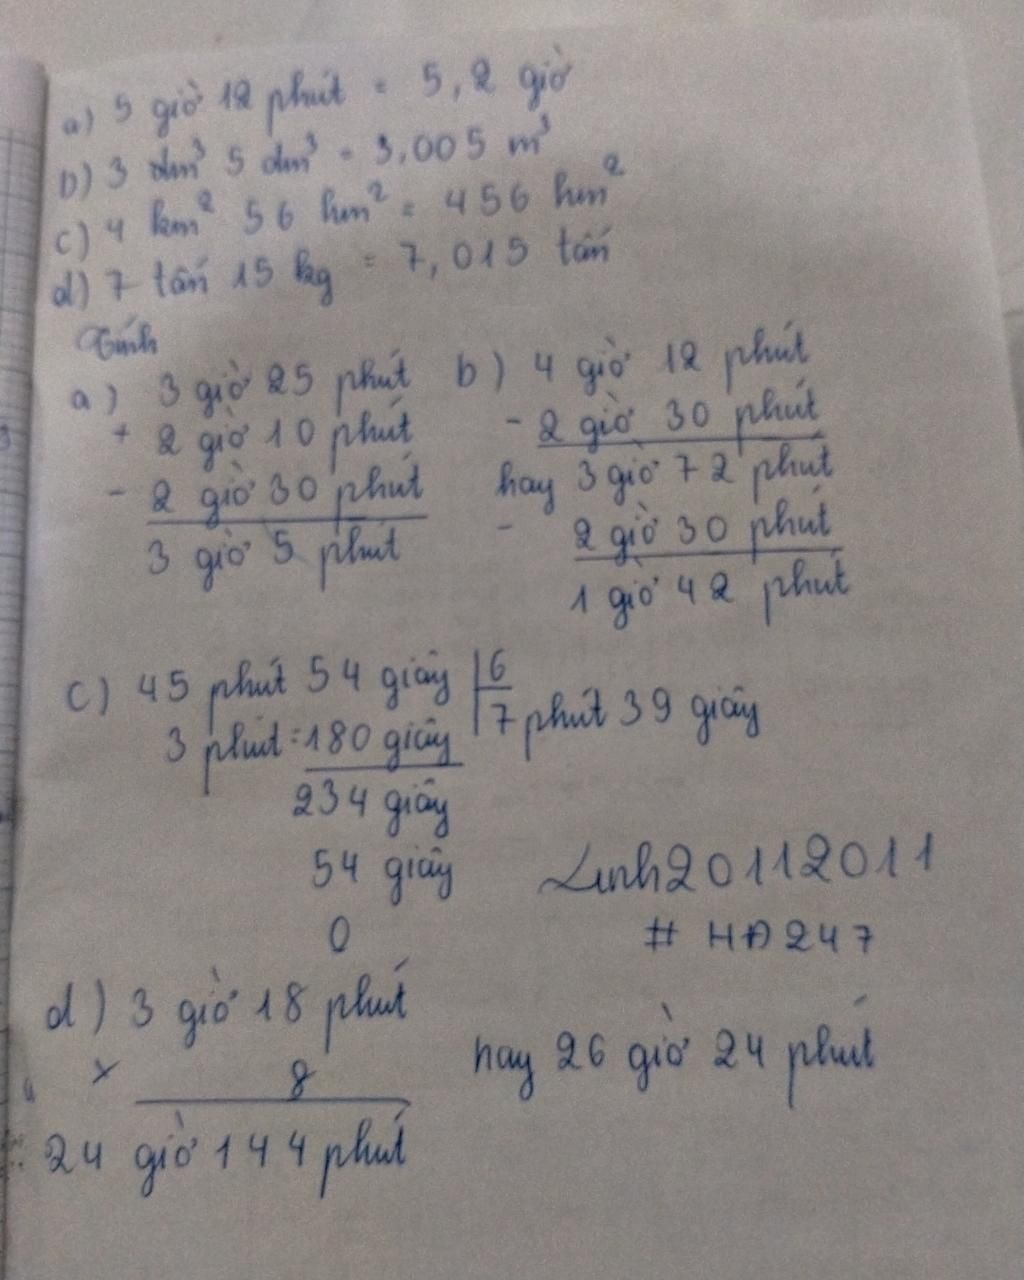 a) 5 giờ 12 phút = 5,2 giờ
b) 3 dm³ 5 dm³ = 3,005 m³
c) 4 km² 56 hm² = 456 hm²
d) 7 tấn 15 kg = 7,015 tấn
Tính
a) 3 giờ 25 phút
+ 2 giờ 10 phút
- 2 giờ 30 phút
3 giờ 5 phút
b) 4 giờ 12 phút
- 2 giờ 30 phút
hay 3 giờ 72 phút
- 2 giờ 30 phút
1 giờ 42 phút
c) 45 phút 54 giây | 6
3 phút = 180 giây | 7 phút 39 giây
234 giây
54 giây
0
Linh20112011
# HĐ247
d) 3 giờ 18 phút
× 8
24 giờ 144 phút
hay 26 giờ 24 phút